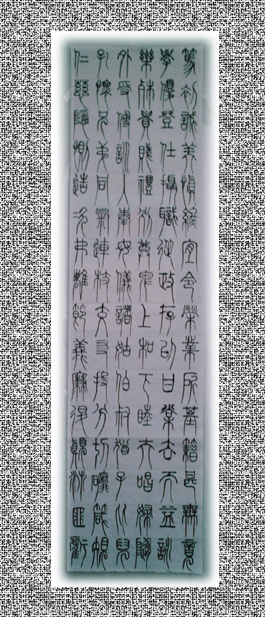 篤初誠美慎終宜令榮業所基籍甚無竟
學優登仕攝職從政存以甘棠去而益詠
樂殊貴賤禮別尊卑上和下睦夫唱婦隨
外受傅訓入奉母儀諸姑伯叔猶子比兒
孔懷兄弟同氣連枝交友投分切磨箴規
仁慈隱惻造次弗離節義廉退顛沛匪虧